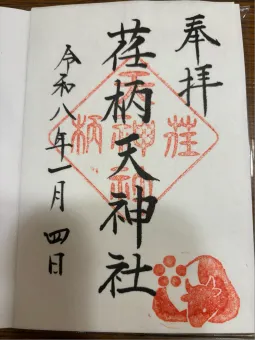 奉拝
荏柄天神社
令和八年一月四日
荏柄
天神社